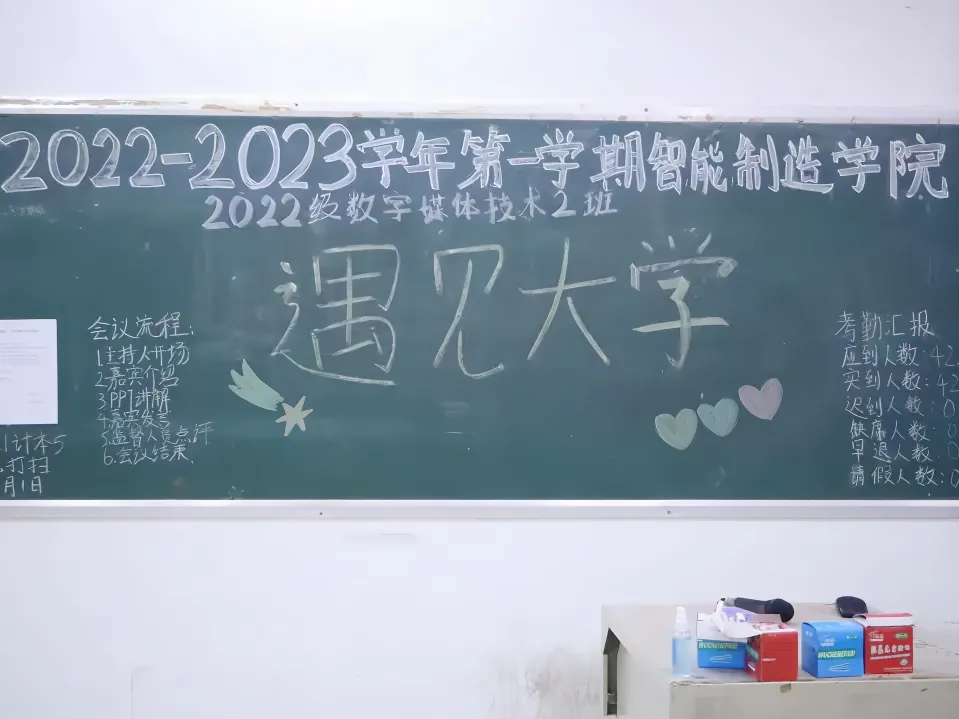 2022-2023学年第一学期智能制造学院
2022级数字媒体技术2班
遇见大学
会议流程:
1.主持人开场
2.嘉宾介绍
3.PPT讲解
4.嘉宾发言
5.监督人员点评
6.会议结束.
计本5
打扫
月1日
考勤汇报
应到人数:42
实到人数:42
迟到人数:0
缺席人数:0
早退人数:0
请假人数:0